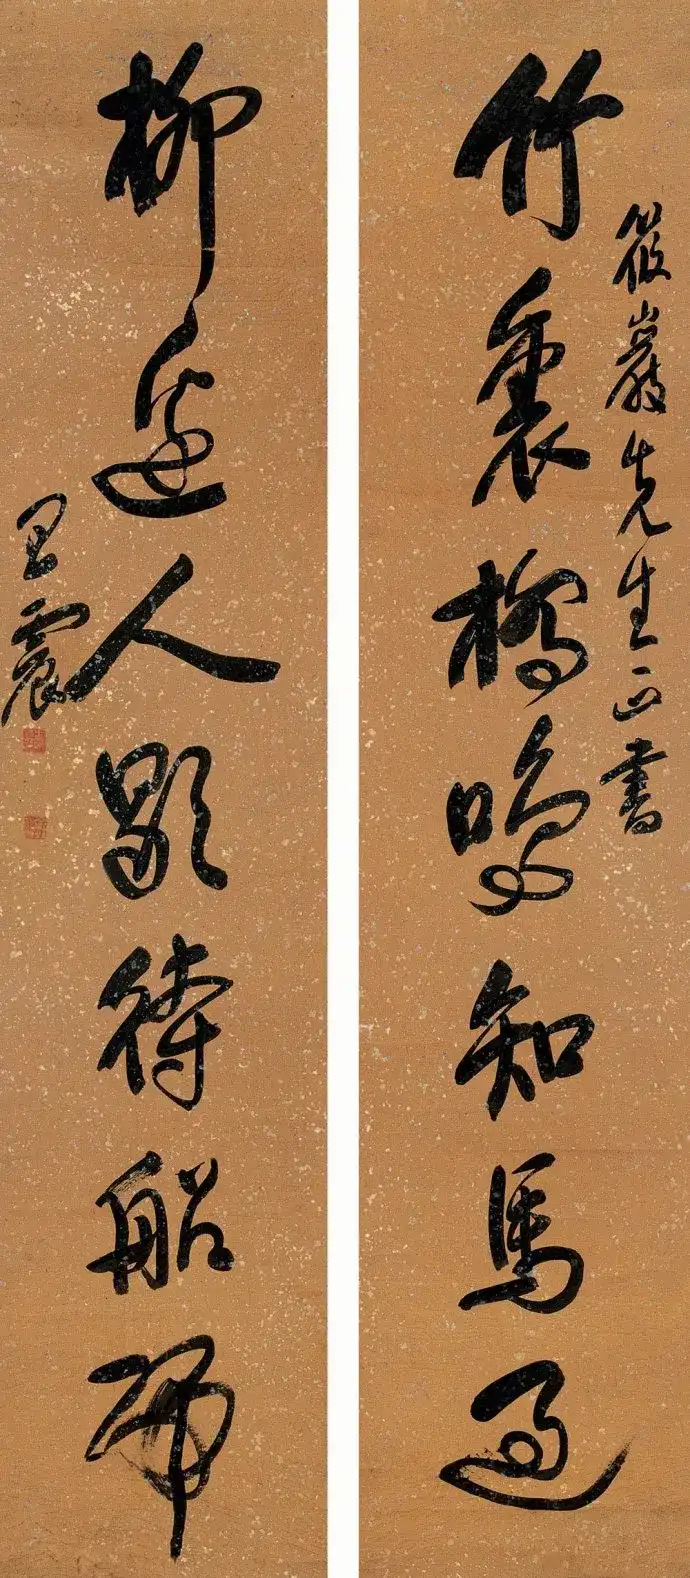 筱巖先生正書
竹裏橋鳴知馬過
柳邊人歇待船歸
王震